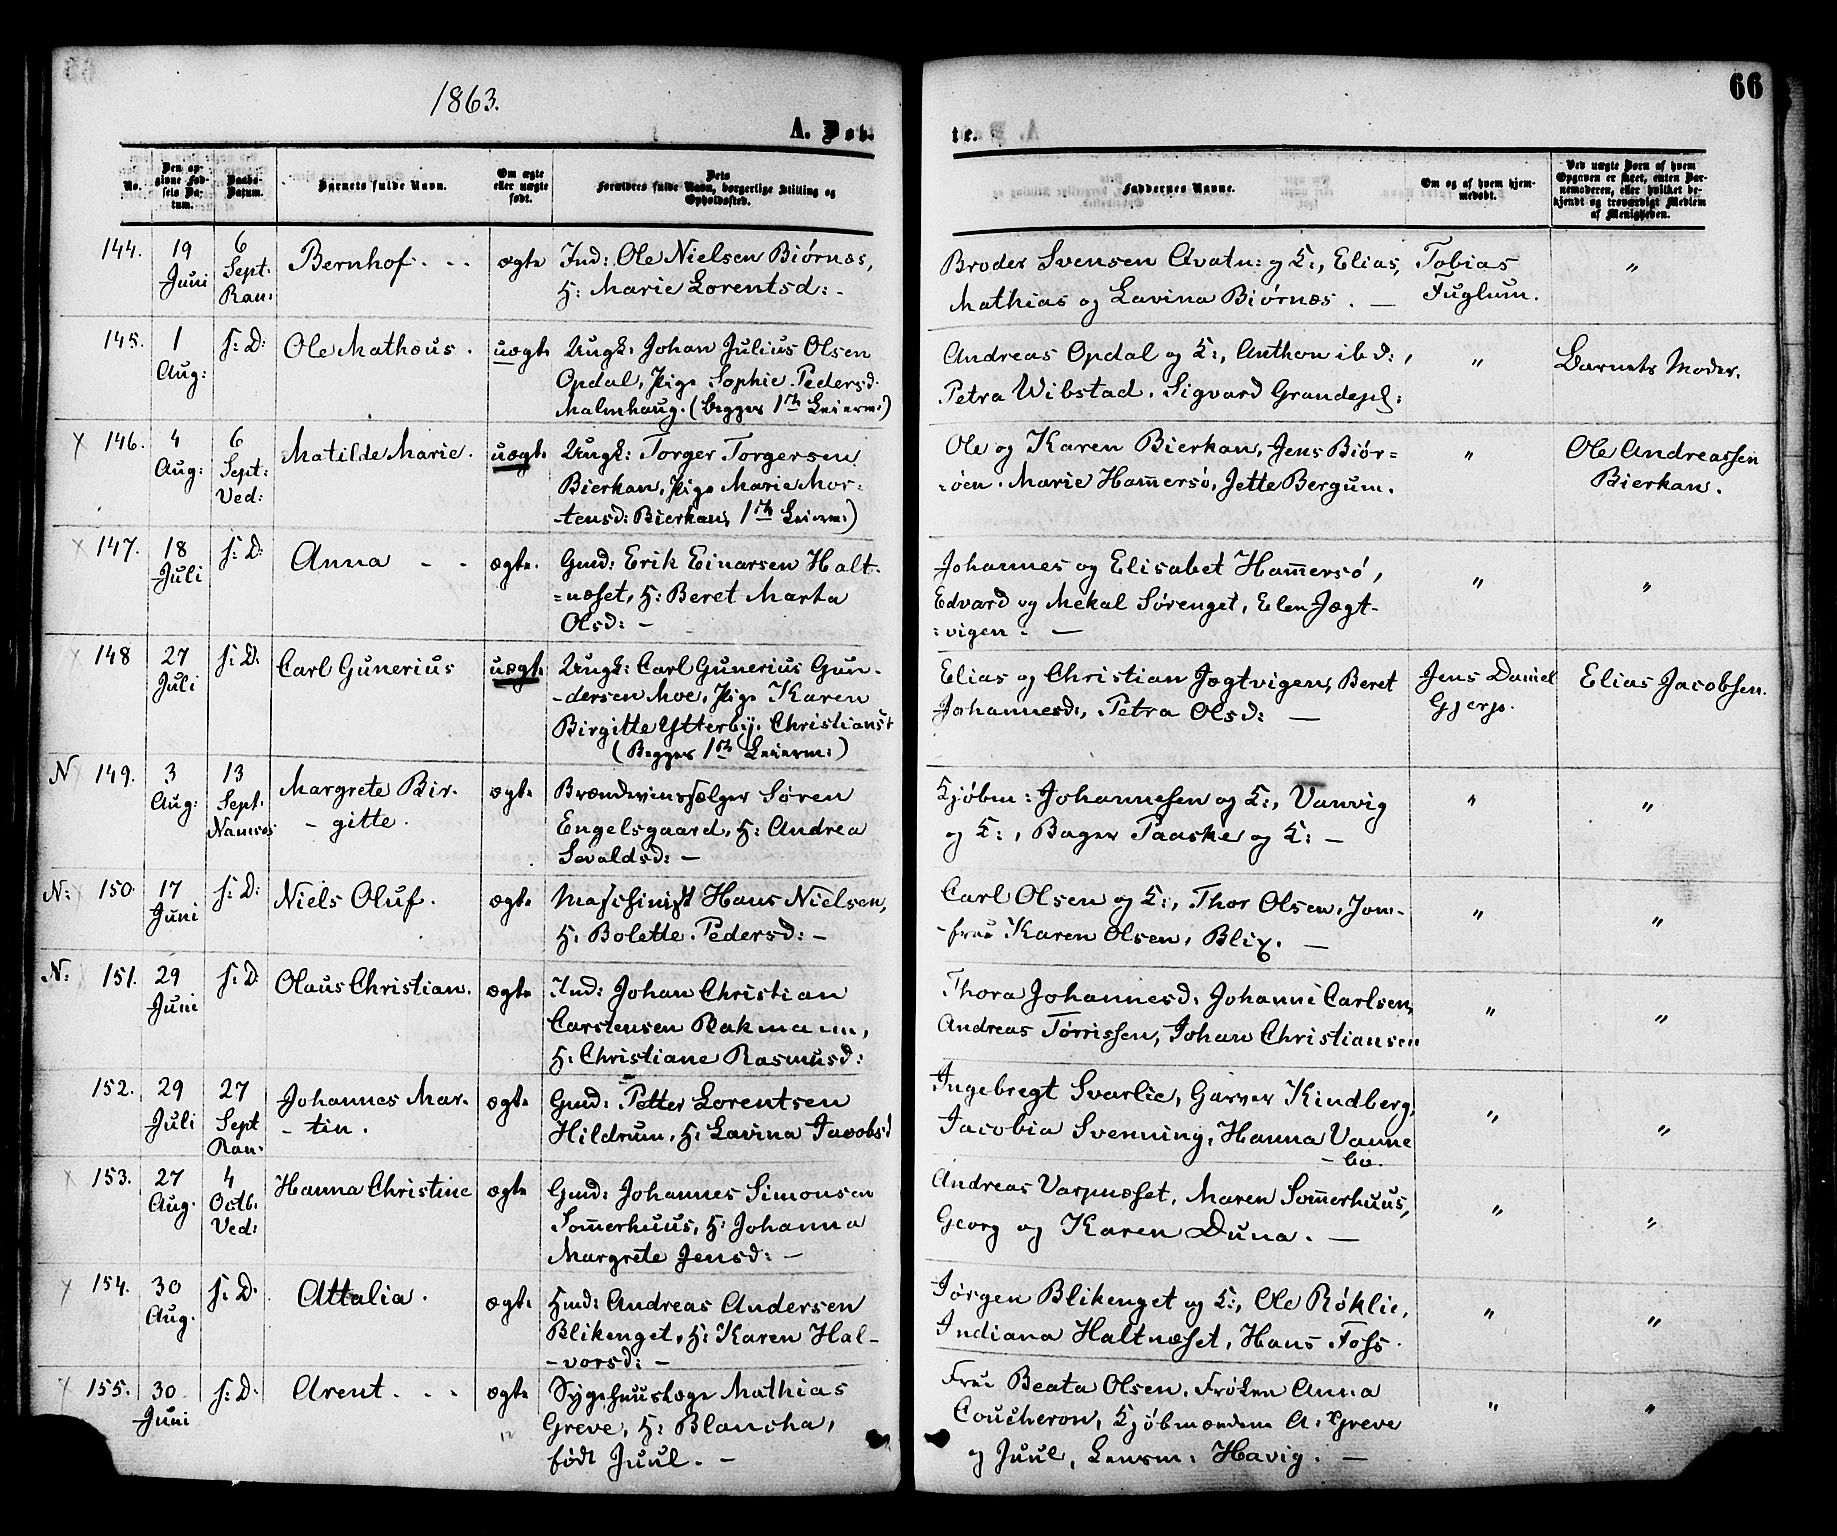 1863.
66
A. Døb-
te.
No.
Den opgivne Fødsels Datum.
Daabs-Datum.
Barnets fulde Navn.
Om ægte eller uægte født.
Dets Forældres fulde Navn, borgerlige Stilling og Opholdssted.
Faddernes Navne.
Om og af hvem hjemmedøbt.
Ved uægte Børn af hvem Opgaven er skeet, enten Barnemoderen, eller hvilket bekjendt og troværdigt Medlem af Menigheden.
144. 19 Juni 6 Sept. Ran: Bernhof. - - ægte
Ind: Ole Nielsen Biørnæs,
H: Marie Lorentsd: -
Broder Svensen Avatn: og K:, Elias,
Mathias og Lavina Biørnæs. —
Tobias
Fuglum.
"
145. 1 Aug: s: D: Ole Mathæus. uægte
Ungk: Johan Julius Olsen
Opdal, Pige Sophie Pedersd.
Malmhaug. (begges 1ste Leierm:)
Andreas Opdal og K:, Anthon ibd:,
Petra Wibstad. Sigvard Grandepl:
"
Barnets Moder.
X 146. 4 Aug: 6 Sept: Ved: Matilde Marie. uægte
Ungk: Torger Torgersen
Bierkan, Pige Marie Mor-
-tensd: Bierkan, 1ste Leierm:)
Ole og Karen Bierkan, Jens Biør=
=øen. Marie Ham̄ersø, Jette Bergum.
"
Ole Andreassen
Bierkan.
X 147. 18 Juli s: D: Anna - - ægte.
Gmd: Erik Einarsen Halt-
=næset, H: Beret Marta
Olsd: -
Johannes og Elisabet Ham̄ersø,
Edvard og Mekal Sørenget, Elen Jægt-
=vigen. —
"
"
X 148 27 Juli s: D. Carl Gunerius uægte
Ungk: Carl Gunerius Gun-
-dersen Moe, Pige Karen
Birgitte Ytterby, Christianst
(Begges 1ste Leierm:)
Elias og Christian Jægtvigen, Beret
Johannesd:, Petra Olsd: —
Jens Daniel
Gjerp.
Elias Jacobsen.
N 149. 3 Aug: 13 Sept. Namsos Margrete Bir-
- gitte. ægte
Brændevinssælger Søren
Engelsgaard, H: Andrea
Sevaldsd: -
Kjøbm: Johannesen og K:, Vanvig
og K:, Bager Paaske og K: -
"
"
N: 150. 17 Juni s: D: Niels Oluf. ægte
Maschinist Hans Nielsen,
H: Bolette Pedersd: -
Carl Olsen og K:, Thor Olsen, Jom-
-frue Karen Olsen, Blix. —
"
"
N: 151. 29 Juni s: D. Olaus Christian. ægte
Ind: Johan Christian
Carstensen Bakmann,
H: Christiane Rasmusd:
Thora Johannesd. Johanne Carlsen,
Andreas Tørrissen, Johan Christiansen
"
"
152. 29 Juli 27 Sept Ran: Johannes Mar-
- tin. ægte
Gmd: Petter Lorentsen
Hildrum, H: Lavina Jacobsd
Ingebregt Svarlie, Garver Kindberg,
Jacobia Svenning, Hanna Vanne
- bo.
"
"
X 153. 27 Aug. 4 Octb. Ved: Hanna Christine ægte
Gmd: Johannes Simonsen
Som̄erhuus, H: Johanna
Margrete Jensd: -
Andreas Varpnæset, Maren Som̄erhuus,
Georg og Karen Duna. —
"
"
Y 154. 30 Aug. s: D. Attalia. ægte
Hmd: Andreas Andersen
Blikenget, H: Karen Hal-
-vorsd: -
Jørgen Blikenget og K:, Ole Røklie,
Indiana Haltnæset, Hans Foss.
"
"
Y 155. 30. Juni s: D. Arent. - - ægte
Sygehuuslæge Mathias
Greve, H: Blancha,
født Juul. -
Frue Beata Olsen, Frøken Anna
Coucheron, Kjøbmændene A. Greve
og Juul, Lensm: Havig. —
"
"